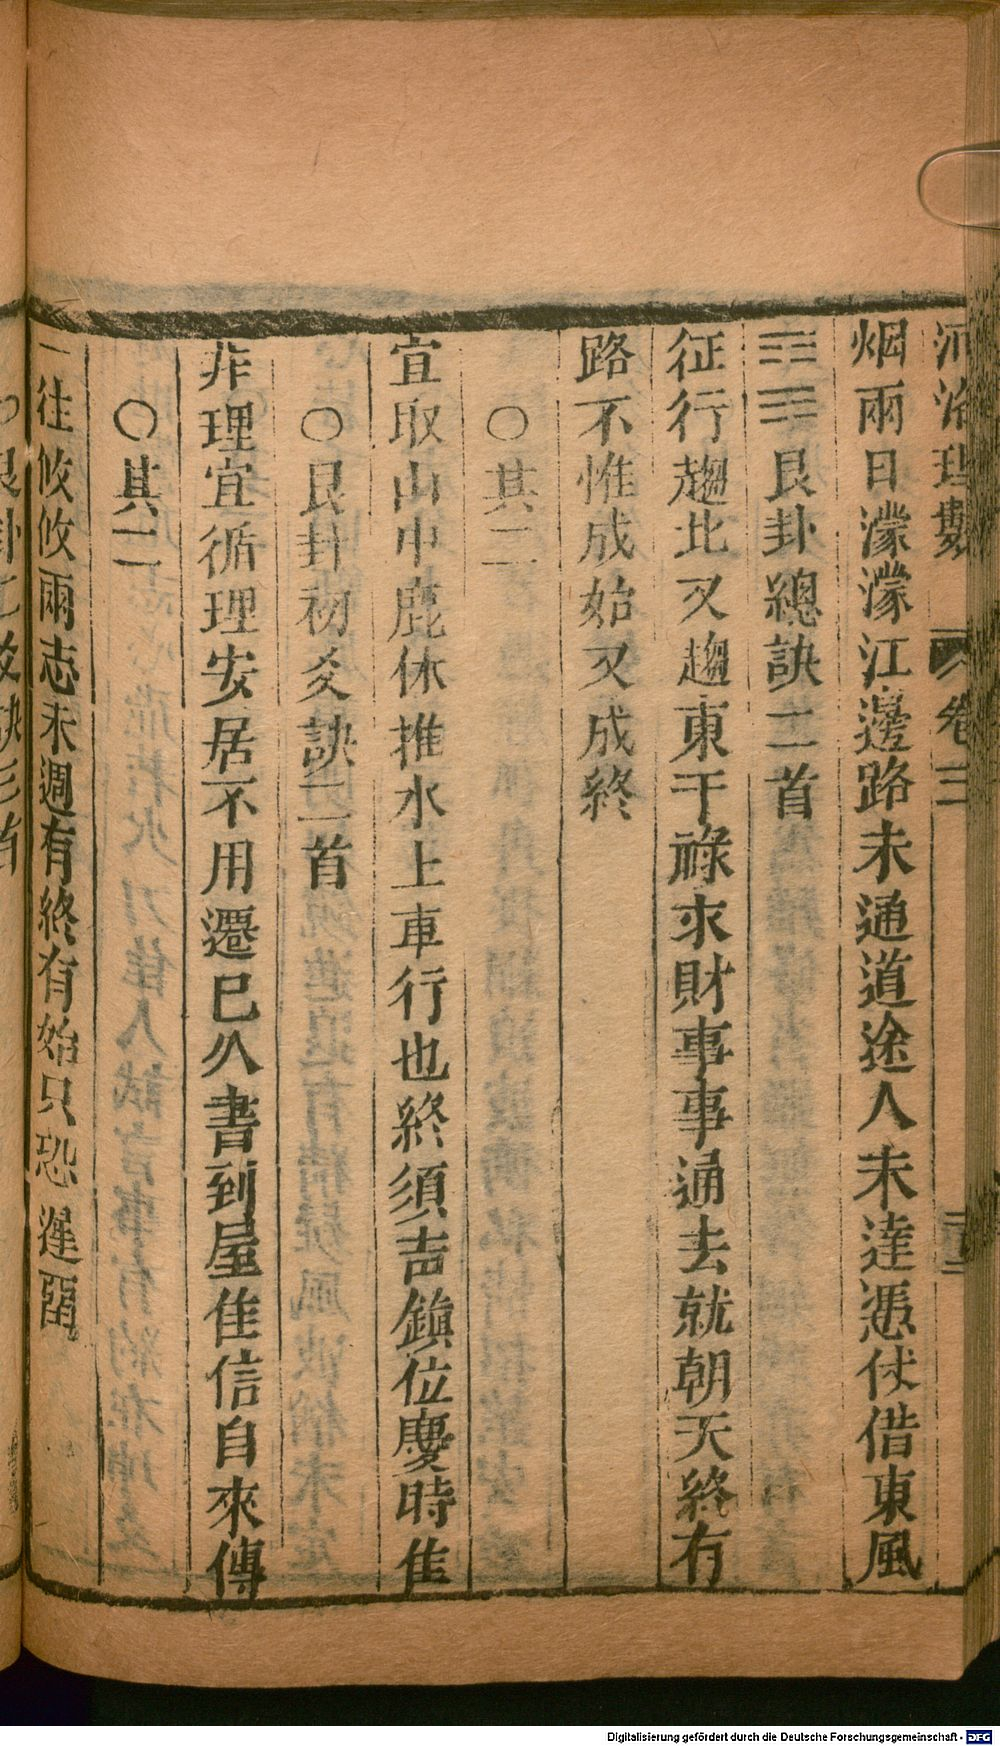 河洛理數 卷三
烟雨日濛濛江邊路未通道途人未達憑伏借東風
䷳艮卦總訣二首
征行趨北又趨東干祿求財事事通去就朝天終有
路不惟成始又成終
○其二
宜取山中鹿休推水上車行也終須吉鎮位慶時隹
○艮卦初爻訣二首
非理宜循理安居不用遷巳久書到屋隹信自來傳
○其二
一往攸攸兩志未週有終有始只恐遲
Digitalisierung gefördert durch die Deutsche Forschungsgemeinschaft - DFG